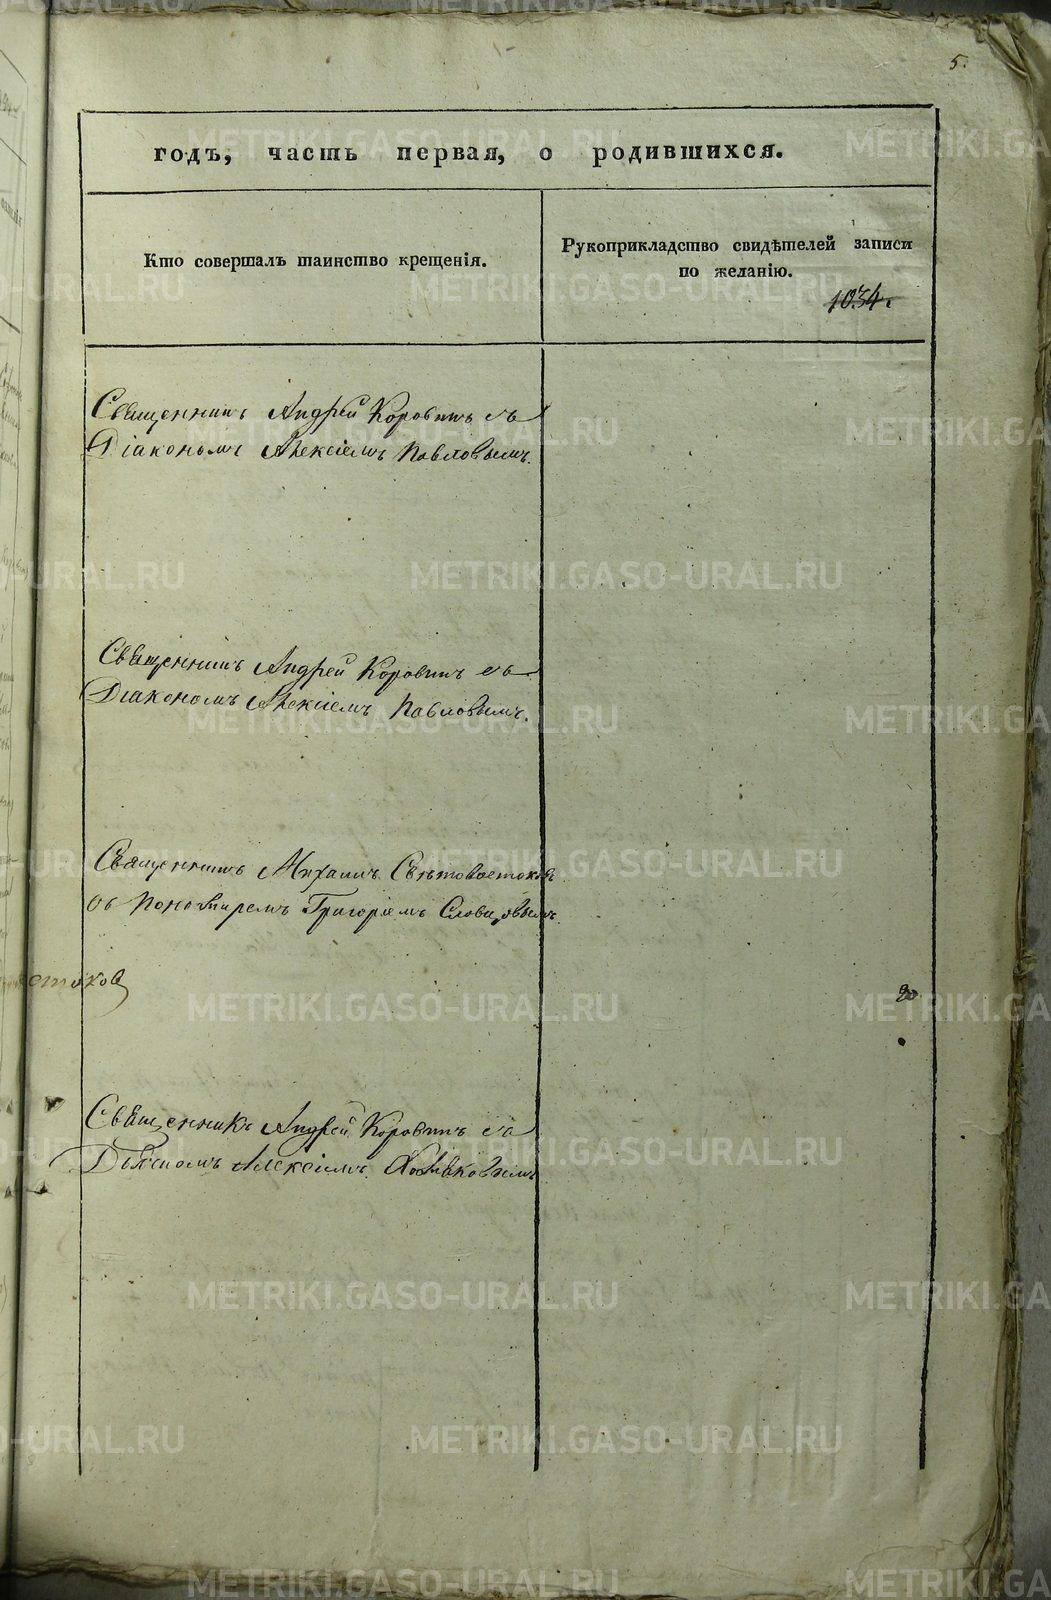 5.
годъ, часть первая, о родившихся.
Кто совершалъ таинство крещенія.
Рукоприкладство свидѣтелей записи
по желанію.
1034.
Священникъ Андрей Коровинъ съ
Діакономъ Алексіемъ Павловымъ.
Священникъ Андрей Коровинъ съ
Діакономъ Алексіемъ Павловымъ.
Священникъ Михаилъ Свѣтовостоковъ
съ Пономаремъ Григоріемъ Словцовымъ.
стоковъ
Священникъ Андрей Коровинъ съ
Дьячкомъ Алексіемъ
METRIKI.GASO-URAL.RU